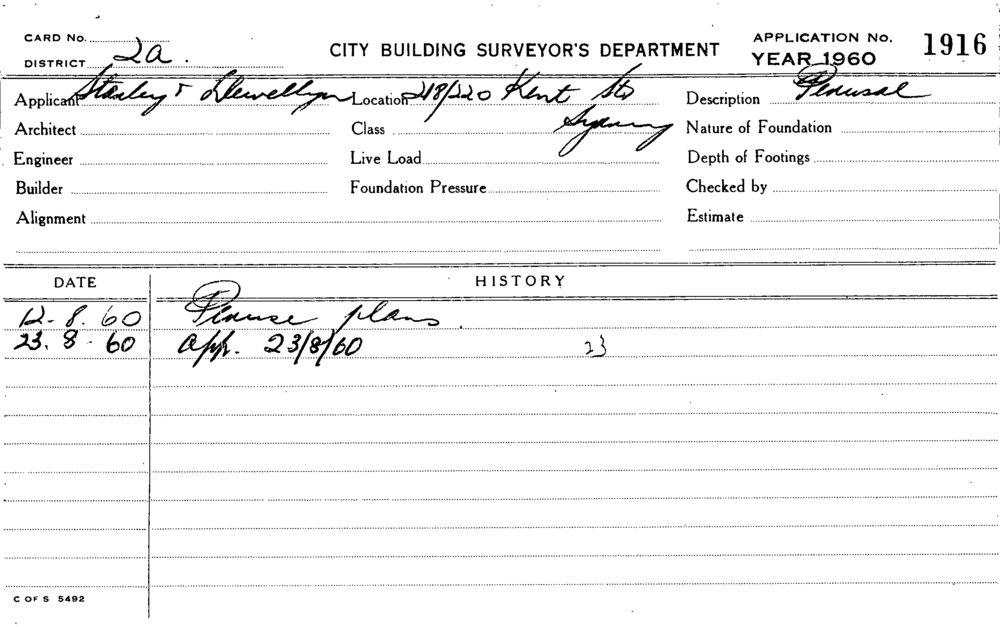 CARD No.
DISTRICT 2a.
CITY BUILDING SURVEYOR'S DEPARTMENT
APPLICATION No. 1916
YEAR 1960
Applicant Stanley & Llewellyn
Location 218/220 Kent St
Sydney
Description Perusal
Architect
Class
Nature of Foundation
Engineer
Live Load
Depth of Footings
Builder
Foundation Pressure
Checked by
Alignment
Estimate
DATE HISTORY
12. 8. 60 Peruse plans.
23. 8. 60 app. 23/8/60 23
C OF S 5492